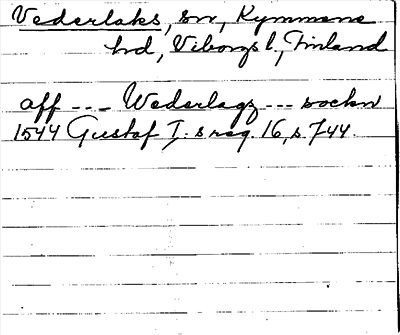 Vederlaks, sn, Kymmene
hd, Viborgs l., Finland
aff --- Wederlagz --- sockn
1544 Gustof I:s reg. 16, s. 744.